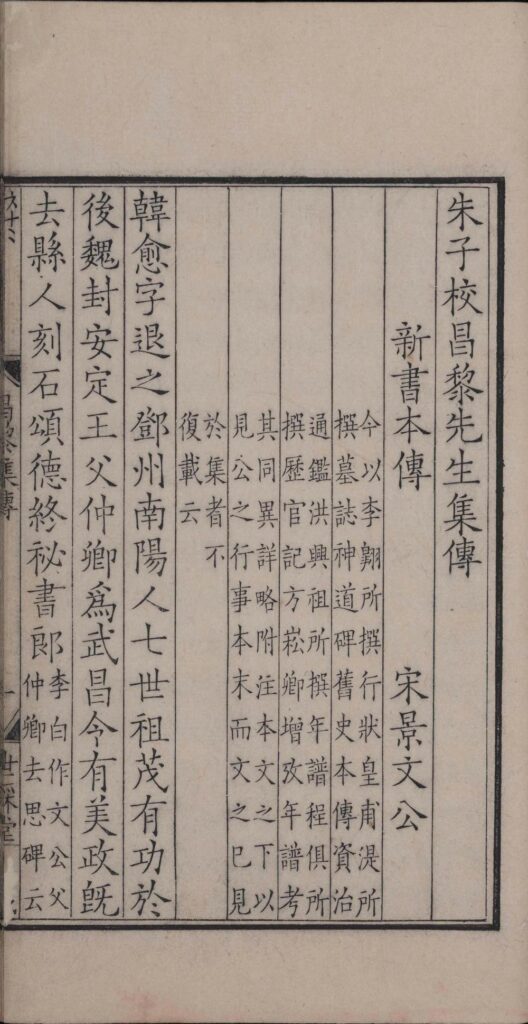 朱子校昌黎先生集傳
新書本傳 宋景文公
今以李翺所撰行狀皇甫湜所
撰墓誌神道碑舊史本傳資治
通鑑洪興祖所撰年譜程俱所
撰歷官記方崧卿增攷年譜考
其同異詳略附注本文之下以
見公之行事本末而文之已見
於集者不
復載云
韓愈字退之鄧州南陽人七世祖茂有功於
後魏封安定王父仲卿爲武昌令有美政旣
去縣人刻石頌德終祕書郎 李白作文公父
仲卿去思碑云
昌黎集傳 一 世綵堂